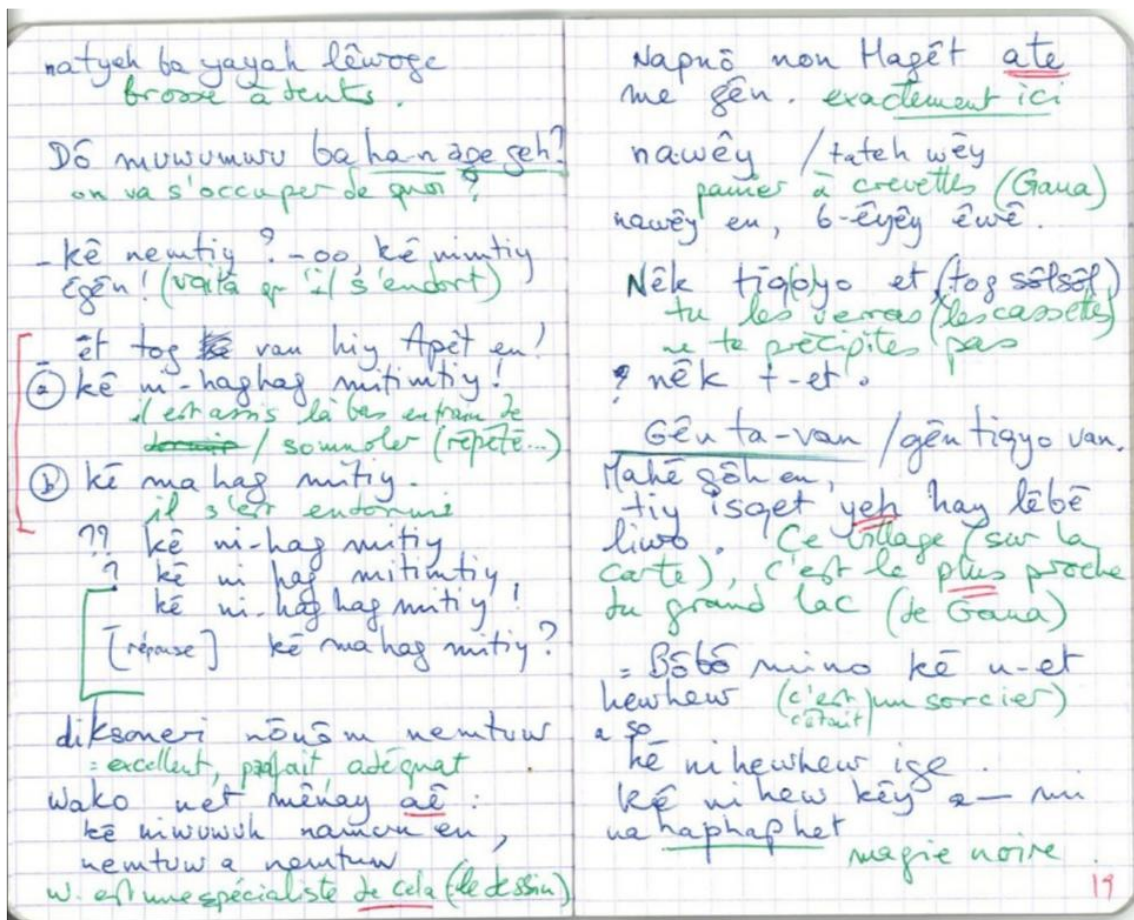 natyeh ba yayah lêwoge
brosse à dents.
Dô muwumwu ba ha-n age geh?
on va s'occuper de quoi ?
- kê nemtiy ? - oo, kê nimtiy
êgên ! (voilà qu'il s'endort)
êt tog van hiy Apêt en !
(a) kê ni-haghag mitimtiy !
il est assis là-bas en train de
/ somnoler (répété...)
(b) kê ma hag mitiy.
il s'est endormi
?? kê ni-hag mitiy
? kê ni hag mitimtiy,
kê ni-hag hag mitiy !
[réponse] kê ma hag mitiy ?
diksoneri nônôm nemtuw
= excellent, parfait, adéquat
Wako net mênay aê :
kê niwuwuh namun en,
nemtuw a nemtuw
W. est une spécialiste de cela (le dessin)
Napnô non Hagêt ate
me gên. exactement ici
nawêy / tateh wêy
panier à crevettes (Gaua)
nawêy en, b-êyêy êwê.
Nêk tiq(o)yo et (tog sôlsôl)
tu les verras (les cassettes)
ne te précipites pas
? nêk t-et.
Gên ta-van / gên tiqyo van.
Mahê gôh en,
tiy isqet yeh hay lêbê
liwo. Ce village (sur la
carte), c'est le plus proche
du grand lac (de Gaua)
= Bôbô mino kê n-et
hewhew (c'est un sorcier)
c'était
a so
kê ni hewhew ige.
Kê ni hew kêy a — mi
na haphap het
magie noire.
19